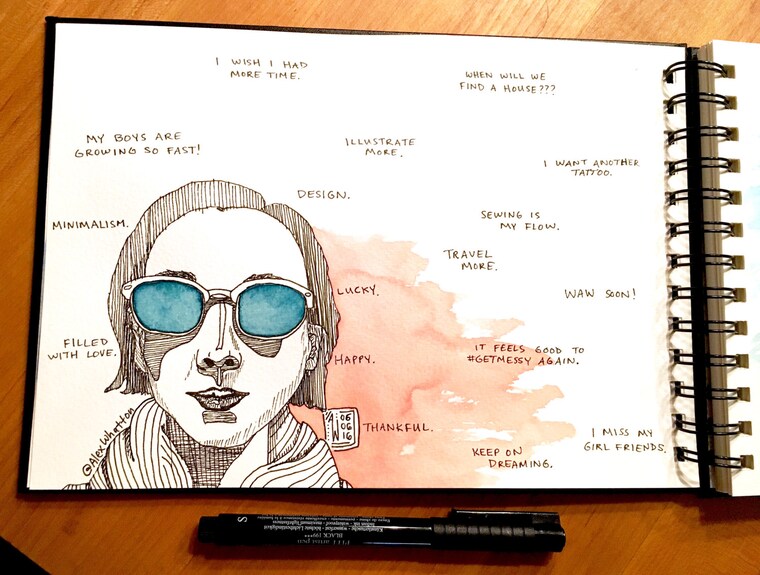 I WISH I HAD
MORE TIME.
WHEN WILL WE
FIND A HOUSE???
MY BOYS ARE
GROWING SO FAST!
ILLUSTRATE
MORE.
I WANT ANOTHER
TATTOO.
DESIGN.
MINIMALISM.
SEWING IS
MY FLOW.
TRAVEL
MORE.
LUCKY.
WAW SOON!
FILLED
WITH LOVE.
HAPPY.
IT FEELS GOOD TO
#GETMESSY AGAIN.
@AlexWhetton
A 06
06
W 16
THANKFUL.
I MISS MY
GIRL FRIENDS.
KEEP ON
DREAMING.
S
PITT artist pen
BLACK 199***